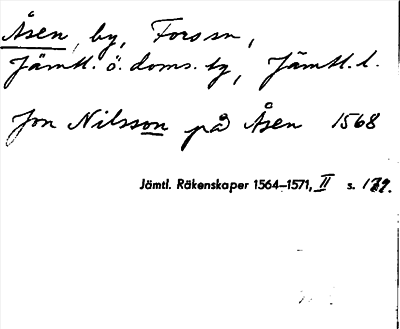 Åsen, by, Forssn,
Jämtl. ö. doms. tg, Jämtl. l.
Jon Nilsson på Åsen 1568
Jämtl. Räkenskaper 1564–1571, II s.